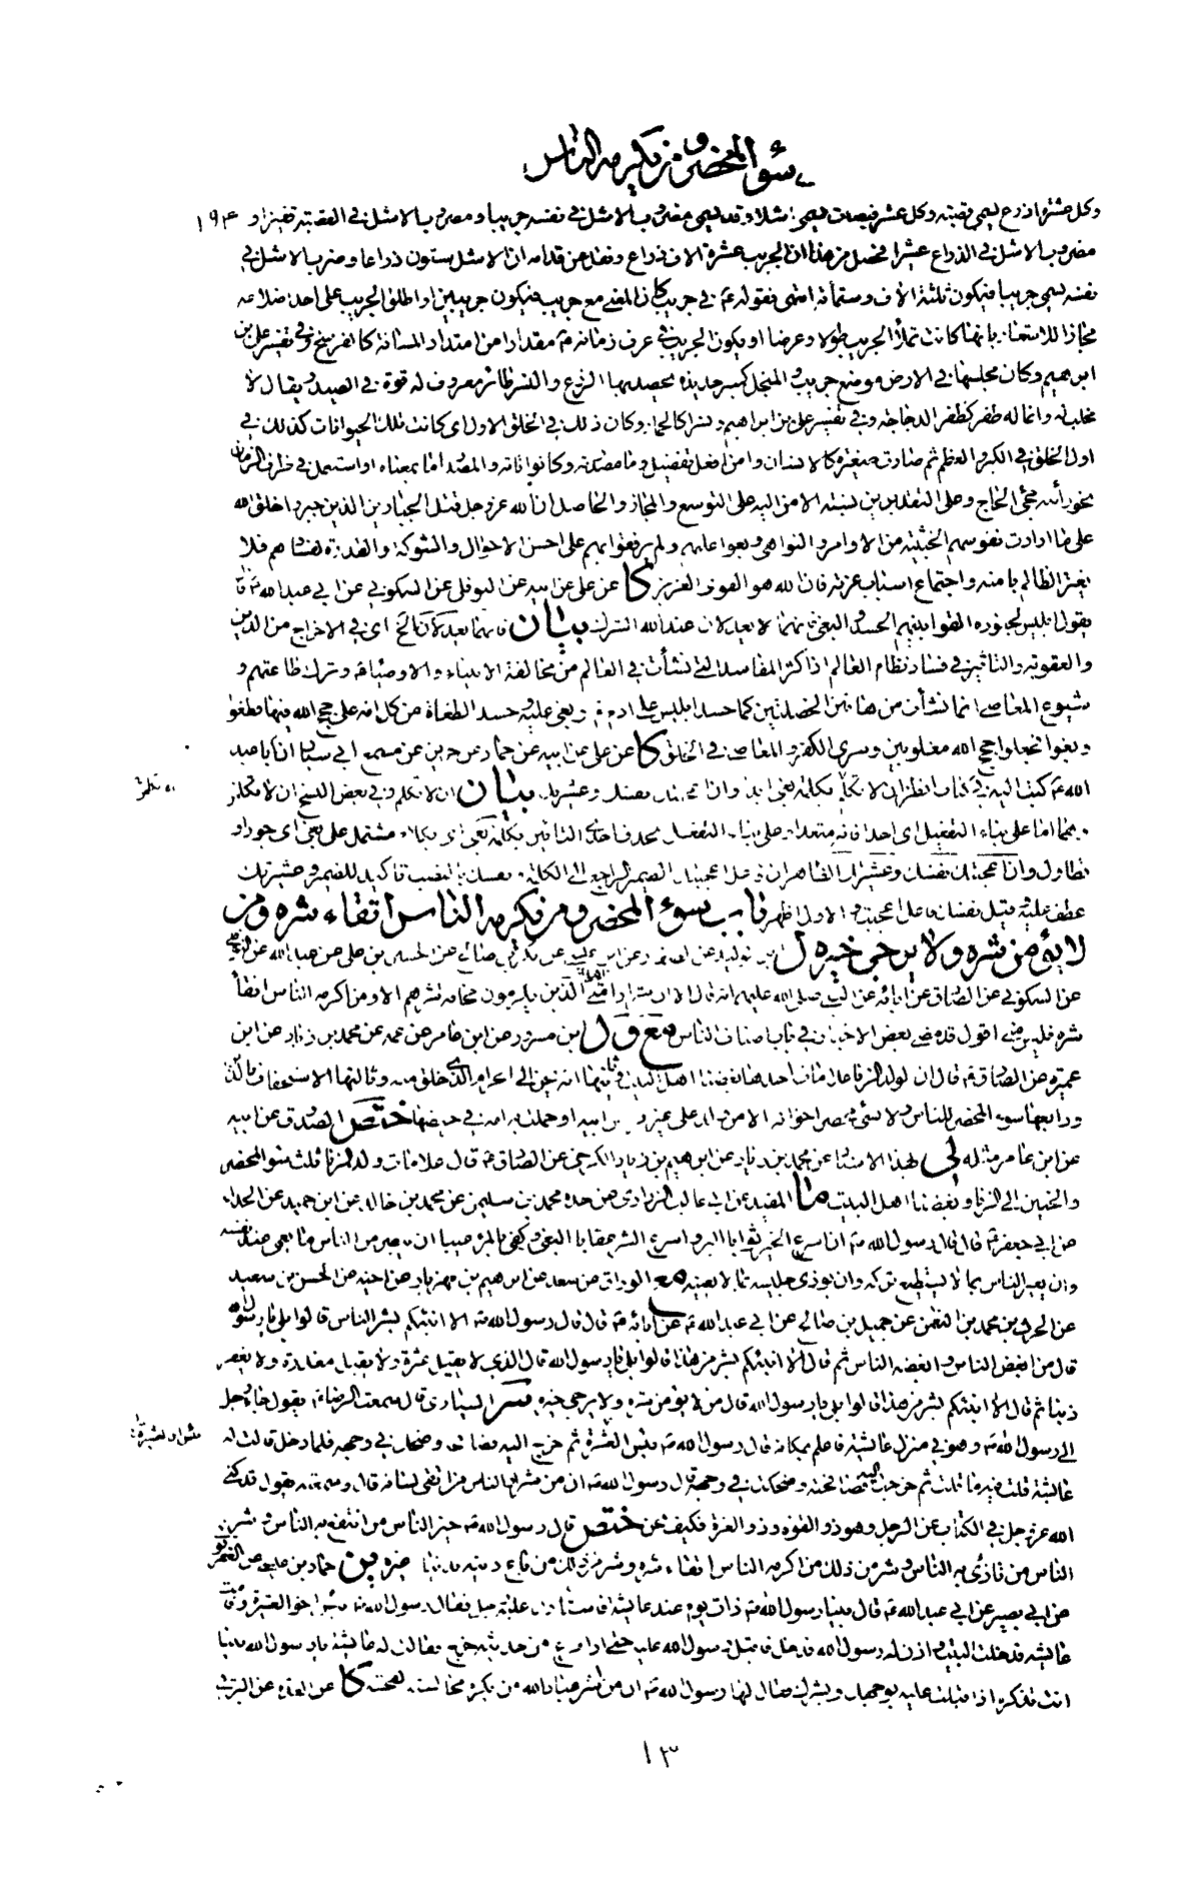 سوء المحضر ومن يكرمه الناس
وكل عشرة اذرع يسمى قصبة وكل عشر قصبات يسمى اشلا وقد يسمى مضروب الاشل في نفسه جريبا ومضروب الاشل في القصبة قفيزا و ١٩٤
مضروب الاشل في الذراع عشيرا فحصل من هذا ان الجريب عشرة الاف ذراع ونقل عن قدامة ان الاشل ستون ذراعا وضرب الاشل في
نفسه يسمى جريبا فيكون ثلثة الاف وستمائة انتهى فقوله ع في جريب كان المعنى مع جريب فيكون جريبين او اطلق الجريب على احد اضلاعه
مجازا للاشعار بانها كانت تملأ الجريب طولا وعرضا او يكون الجريب في عرف زمانه ع مقدارا من امتداد المسافة كالفرسخ وفي تفسير علي بن
ابرهيم وكان مجلسها في الارض موضع جريب و المنجل كمنبر حديدة يحصد بها الزرع و النسر طائر معروف له قوة في الصيد ويقال لا
مخلب له وانما له ظفر كظفر الدجاجة وفي تفسير علي بن ابراهيم ونسرا كالحمار وكان ذلك في الخلق الاول اى كانت تلك الحيوانات كذلك في
اول الخلق في الكبر والعظم ثم صارت صغيرة كالانسان وامن افعل تفضيل وما مصدرية وكانوا تامة والمصدر اما بمعناه او استعمل في ظرف الزمان
نحو رأيته مجئ الحاج وعلى التقديرين نسبة الامن اليه على التوسع والمجاز والحاصل ان الله عز وجل قتل الجبارين الذين جبروا خلق الله
على ما ارادت نفوسهم الخبيثة من الاوامر والنواهى وبغوا عليهم ولم يرفعوا بهم على احسن الاحوال والشوكة والقدرة لفسادهم فلا
يغتر الظالم بامنه واجتماع اسباب عزته فان الله هو القوي العزيز كا عن علي عن ابيه عن النوفلي عن السكوني عن ابي عبدالله ع قال
يقول ابليس لجنوده القوا بينهم الحسد والبغى فانهما لا يعدلان عند الله الشرك بيان فانهما يعدلان الخ اى في الاخراج من الدين
والعقوبة والتاثير في فساد نظام العالم اذ اكثر المفاسد التي نشأت في العالم من مخالفة الانبياء والاوصياء ع وترك طاعتهم و
شيوع المعاصى انما نشأت من هاتين الخصلتين كما حسد ابليس على ادم ع وبغى عليه وحسد الطغاة من كل امة على حجج الله فيها فطغوا
وبغوا فجعلوا حجج الله مغلوبين وسرى الكفر والمعاصى في الخلق كا عن علي عن ابيه عن حماد عن حريز عن مسمع ابي سيار ان ابا عبد
الله ع كتب اليه في كتاب انظر ان لا تكلمن بكلمة بغى ابدا وان اعجبتك نفسك وعشيرتك بيان ان لا تكلم وفي بعض النسخ ان لا تكلمن
بهما اما على بناء التفعيل اى احدا فانه متعد او على بناء التفعل بحذف احدى التائين بكلمة بغى اى بكلام مشتمل على بغى اى جور او
تطاول وان اعجبتك نفسك وعشيرتك الظاهر ان فاعل اعجبتك الضمير الراجع الى الكلمة ونفسك بالنصب تاكيد للضمير وعشيرتك
عطف عليه وقيل نفسك فاعل اعجبت و الاول اظهر باب سوء المحضر ومن يكرمه الناس اتقاء شره ومن
لا يؤمن شره ولا يرجى خيره ل
عن السكوني عن الصادق عن ابائه عن النبي صلى الله عليهم انه قال الا ان شرار امتي الذين يكرمون مخافة شرهم الا ومن اكرمه الناس اتقاء
شره فليس مني اقول قد مضى بعض الاخبار في باب اصناف الناس مع ل ابن مسرور عن ابن عامر عن عمه عن محمد بن زياد عن ابن
عميرة عن الصادق ع قال ان لولد الزنا علامات احدها بغضنا اهل البيت وثانيها انه يحن الى الحرام الذى خلق منه وثالثها الاستخفاف بالدين
ورابعها سوء المحضر للناس ولا يسئ محضر اخوانه الا من ولد على غير فراش ابيه او حملت به امه في حيضها ختص الصدوق عن ابيه
عن ابن عامر مثله لى بهذا الاسناد عن محمد بن زياد عن ابرهيم بن زياد الكرخى عن الصادق ع قال علامات ولد الزنا ثلث سوء المحضر
والحنين الى الزنا وبغضنا اهل البيت ما المفيد عن ابي غالب الزراري عن جده محمد بن سليمن عن محمد بن خالد عن ابن حميد عن الحذاء
عن ابي جعفر ع قال قال رسول الله ص ان اسرع الخير ثوابا البر واسرع الشر عقابا البغى وكفى بالمرء عيبا ان يبصر من الناس ما يعمى عنه من نفسه
وان يعير الناس بما لا يستطيع تركه وان يوذى جليسه بما لا يعنيه مع الوراق عن سعد عن ابرهيم بن مهزيار عن اخيه عن الحسن بن سعيد
عن الحرث بن محمد بن النعمن عن جميل بن صالح عن ابي عبدالله ع عن ابائه ع قال قال رسول الله ص الا انبئكم بشر الناس قالوا بلى يا رسول الله
قال من ابغض الناس وابغضه الناس ثم قال الا انبئكم بشر من هذا قالوا بلى يا رسول الله قال الذي لا يقيل عثرة ولا يقبل معذرة ولا يغفر
ذنبا ثم قال الا انبئكم بشر من هذا قالوا بلى يا رسول الله قال من لا يؤمن شره ولا يرجى خيره سر السيارى قال سمعت الرضا ع يقول جاء رجل
الى رسول الله ص وهو في منزل عايشة فاعلم بمكانه قال رسول الله ص بئس العشيرة ثم خرج اليه فصافحه وضحك في وجهه فلما دخل قالت له
عائشة قلت فيه ما قلت ثم خرجت اليه فصافحته وضحكت في وجهه قال رسول الله ص ان من شرار الناس من اتقى لسانه قال وسمعته يقول قد كنى
الله عز وجل في الكتاب عن الرجل وهو ذو القوة وذو العزة فكيف نحن ختص قال رسول الله ص خير الناس من انتفع به الناس وشر
الناس من تأذى به الناس وشر من ذلك من اكرمه الناس اتقاء شره وشر من ذلك من باع دينه بدنيا غيره ين حماد بن عيسى عن العقرقوفي
عن ابي بصير عن ابي عبدالله ع قال بينا رسول الله ص ذات يوم عند عايشة فاستأذن عليه رجل فقال رسول الله ص بئس اخو العشيرة وقامت
عايشة فدخلت البيت و اذن له رسول الله فدخل فاقبل رسول الله عليه حتى اذا فرغ من حديثه خرج فقالت له عايشة يا رسول الله بينا
انت تذكره اذ اقبلت عليه بوجهك وبشرك فقال لها رسول الله ص ان من شر عباد الله من يكره مجالسته لفحشه كا عن العدة عن البرقي
١٣